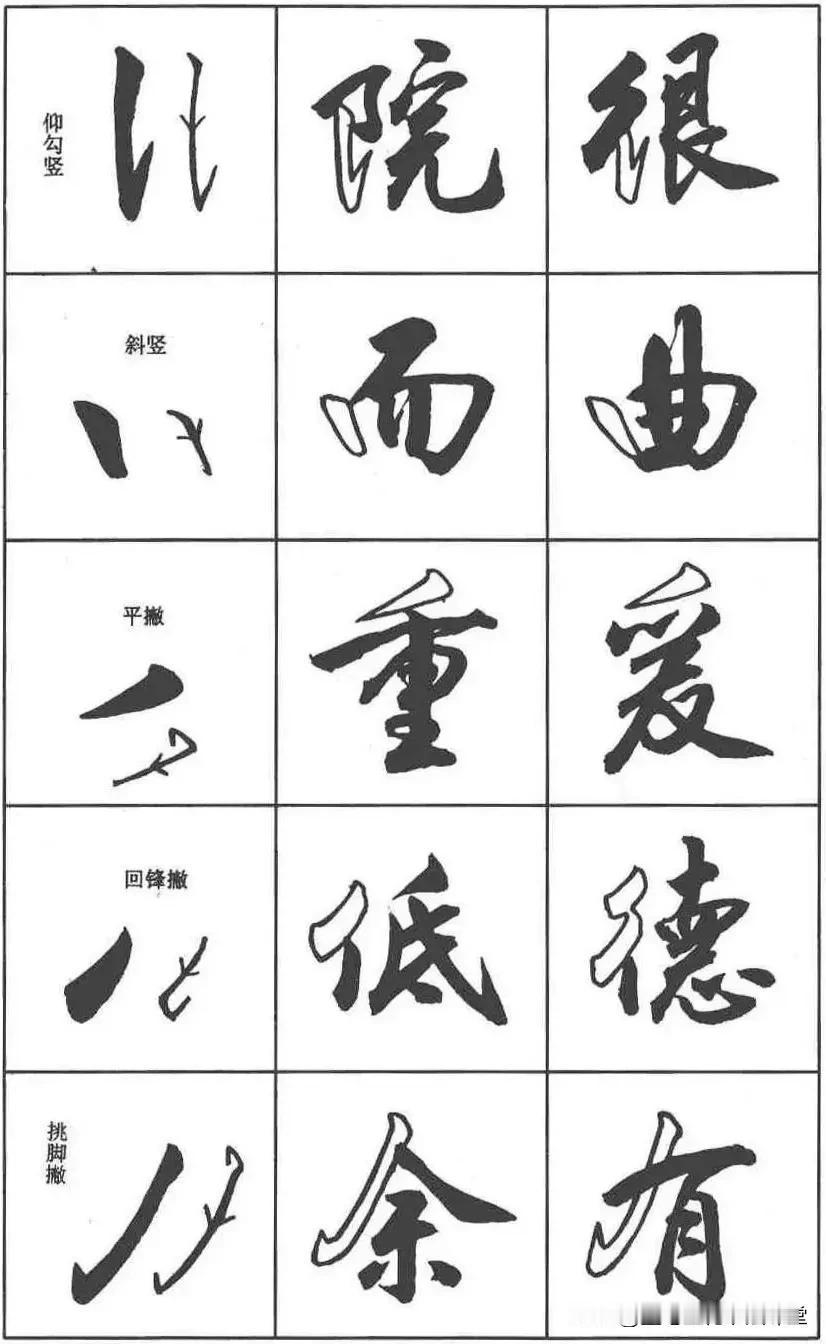 仰勾竖
院
很
斜竖
而
曲
平撇
重
爰
回锋撇
低
德
挑脚撇
余
有
堂